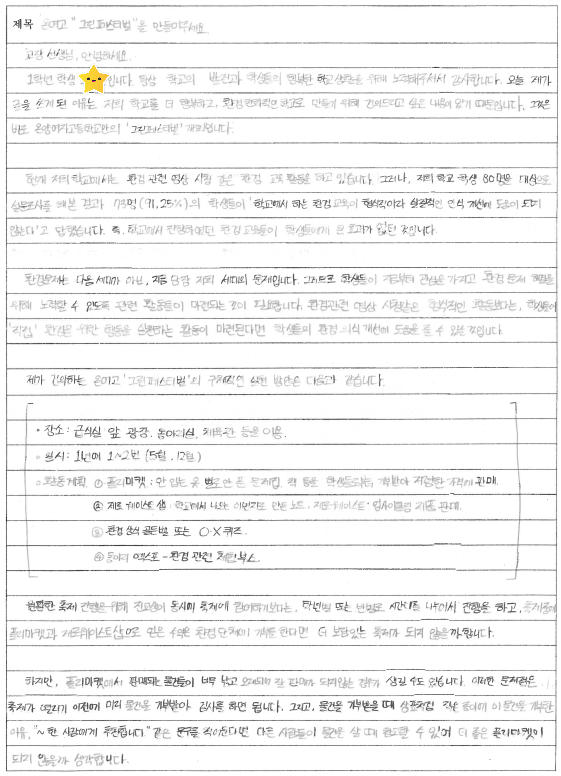 제목 온여고 "그린페스티벌"을 만들어주세요.
교장 선생님, 안녕하세요.
1학년 학생 입니다. 항상 학교의 발전과 학생들의 행복한 학교생활을 위해 노력해주셔서 감사합니다. 오늘 제가
글을 쓰게 된 이유는 저희 학교를 더 행복하고, 환경친화적인 학교로 만들기 위해 건의드리고 싶은 내용이 있기 때문입니다. 그것은
바로 온양여자고등학교만의 '그린페스티벌' 개최입니다.
현재 저희 학교에서는 환경 관련 영상 시청 같은 환경 교육 활동을 하고 있습니다. 그러나, 저희 학교 학생 80명을 대상으로
설문조사를 해본 결과 73명(91.25%)의 학생들이 '학교에서 하는 환경교육이 형식적이라 실질적인 인식 개선에 도움이 되지
않는다'고 답했습니다. 즉, 학교에서 진행하였던 환경 교육들이 학생들에게 큰 효과가 없던 것입니다.
환경문제는 다음 세대가 아닌, 지금 당장 저희 세대의 문제입니다. 그러므로 학생들이 지금부터 관심을 가지고 환경 문제 해결을
위해 노력할 수 있도록 관련 활동들이 마련되는 것이 필요합니다. 환경관련 영상 시청같은 형식적인 활동보다는, 학생들이
'직접' 환경을 위한 행동을 실천하는 활동이 마련된다면 학생들의 환경 의식 개선에 도움을 줄 수 있을 것입니다.
제가 건의하는 온여고 '그린페스티벌'의 구체적인 실현 방안은 다음과 같습니다.
• 장소: 급식실 앞 광장, 동아리실, 체육관 등을 이용.
• 일시: 1년에 1~2번 (5월, 12월)
• 활동계획 ① 플리마켓: 안 입는 옷 별로 안 쓴 문제집, 책 등을 학생들에게 기부받아 저렴한 가격에 판매.
② 제로 웨이스트 샵: 학교에서 나오는 이면지로 만든 노트, 제로웨이스트·업사이클링 제품 판매.
③ 환경 상식 골든벨 또는 O·X 퀴즈.
④ 동아리 엑스포 - 환경 관련 체험부스.
원활한 축제 진행을 위해 전교생이 동시에 축제에 참여하기보다는, 학년별 또는 반별로 시간대를 나누어서 진행을 하고, 축제중에
플리마켓과 제로웨이스트샵으로 얻은 수익은 환경단체에 기부를 한다면 더 보람있는 축제가 되지 않을까 합니다.
하지만, 플리마켓에서 판매되는 물건들이 너무 낡고 오래되어 잘 판매가 되지않는 경우가 생길 수도 있습니다. 이러한 문제점은
축제가 열리기 이전에 미리 물건을 기부받아 검사를 하면 됩니다. 그리고, 물건을 기부받을 때 상품처럼 작은 종이에 이 물건을 기부한
이유, "~한 사람에게 추천합니다." 같은 문구를 적어둔다면 다른 사람들이 물건을 살 때 참고할 수 있어 더 좋은 플리마켓이
되지 않을까 생각합니다.